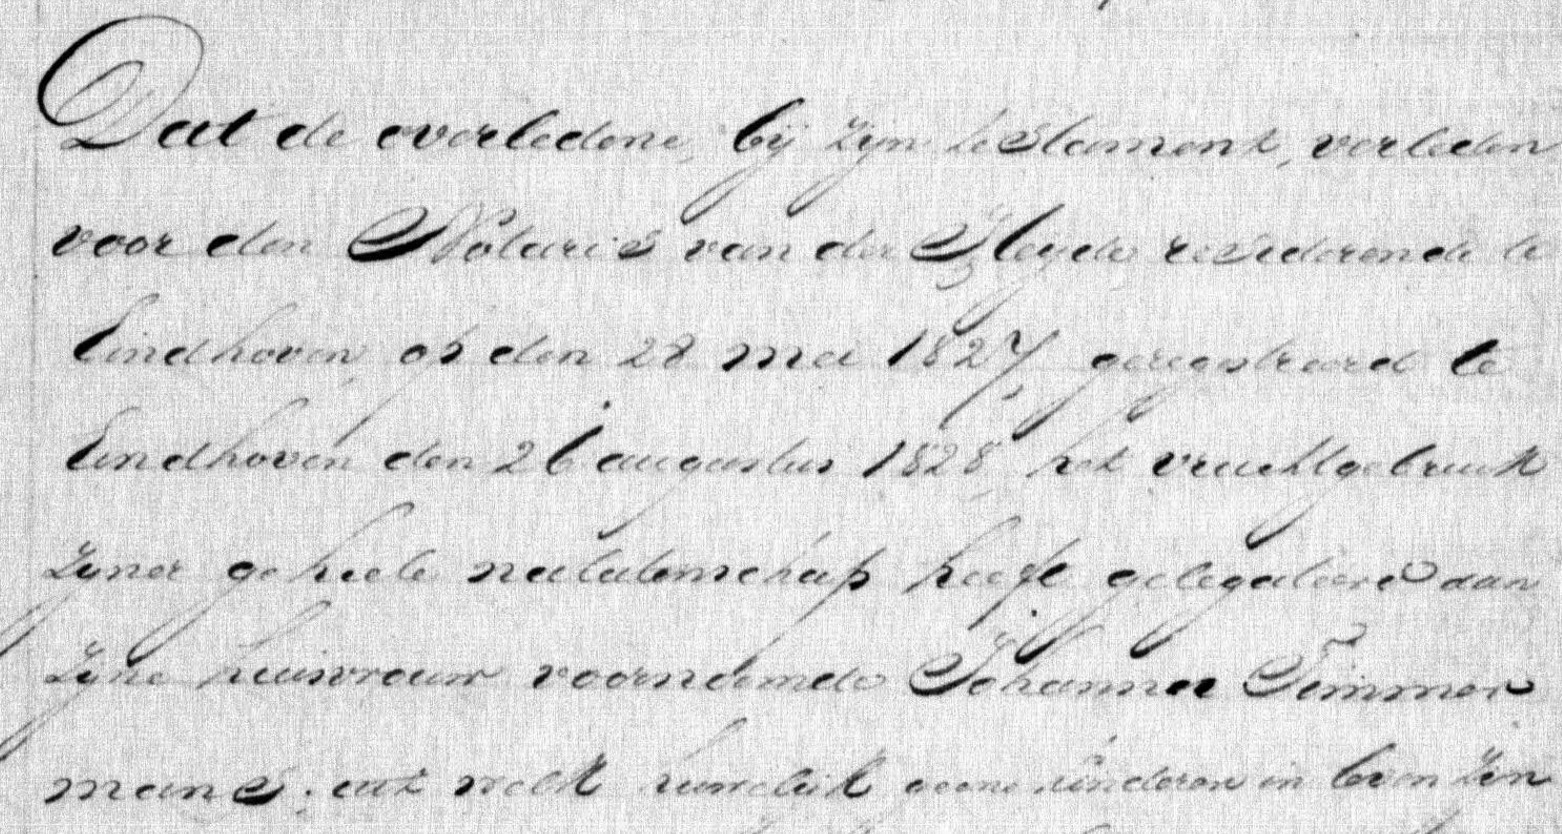 Dat de overledene, bij zijn testament, verleden
voor den Notaris van der Heyde resederende te
Eindhoven op den 28 mei 1827, geregistreerd te
Eindhoven den 26 augustus 1828 het vruchtgebruik
zijner geheele nalatenschap heeft gelegateerd aan
zijne huisvrouw voornoemde Johanna Timmer
mans; uit welk huwelijk geene kinderen in leven zijn